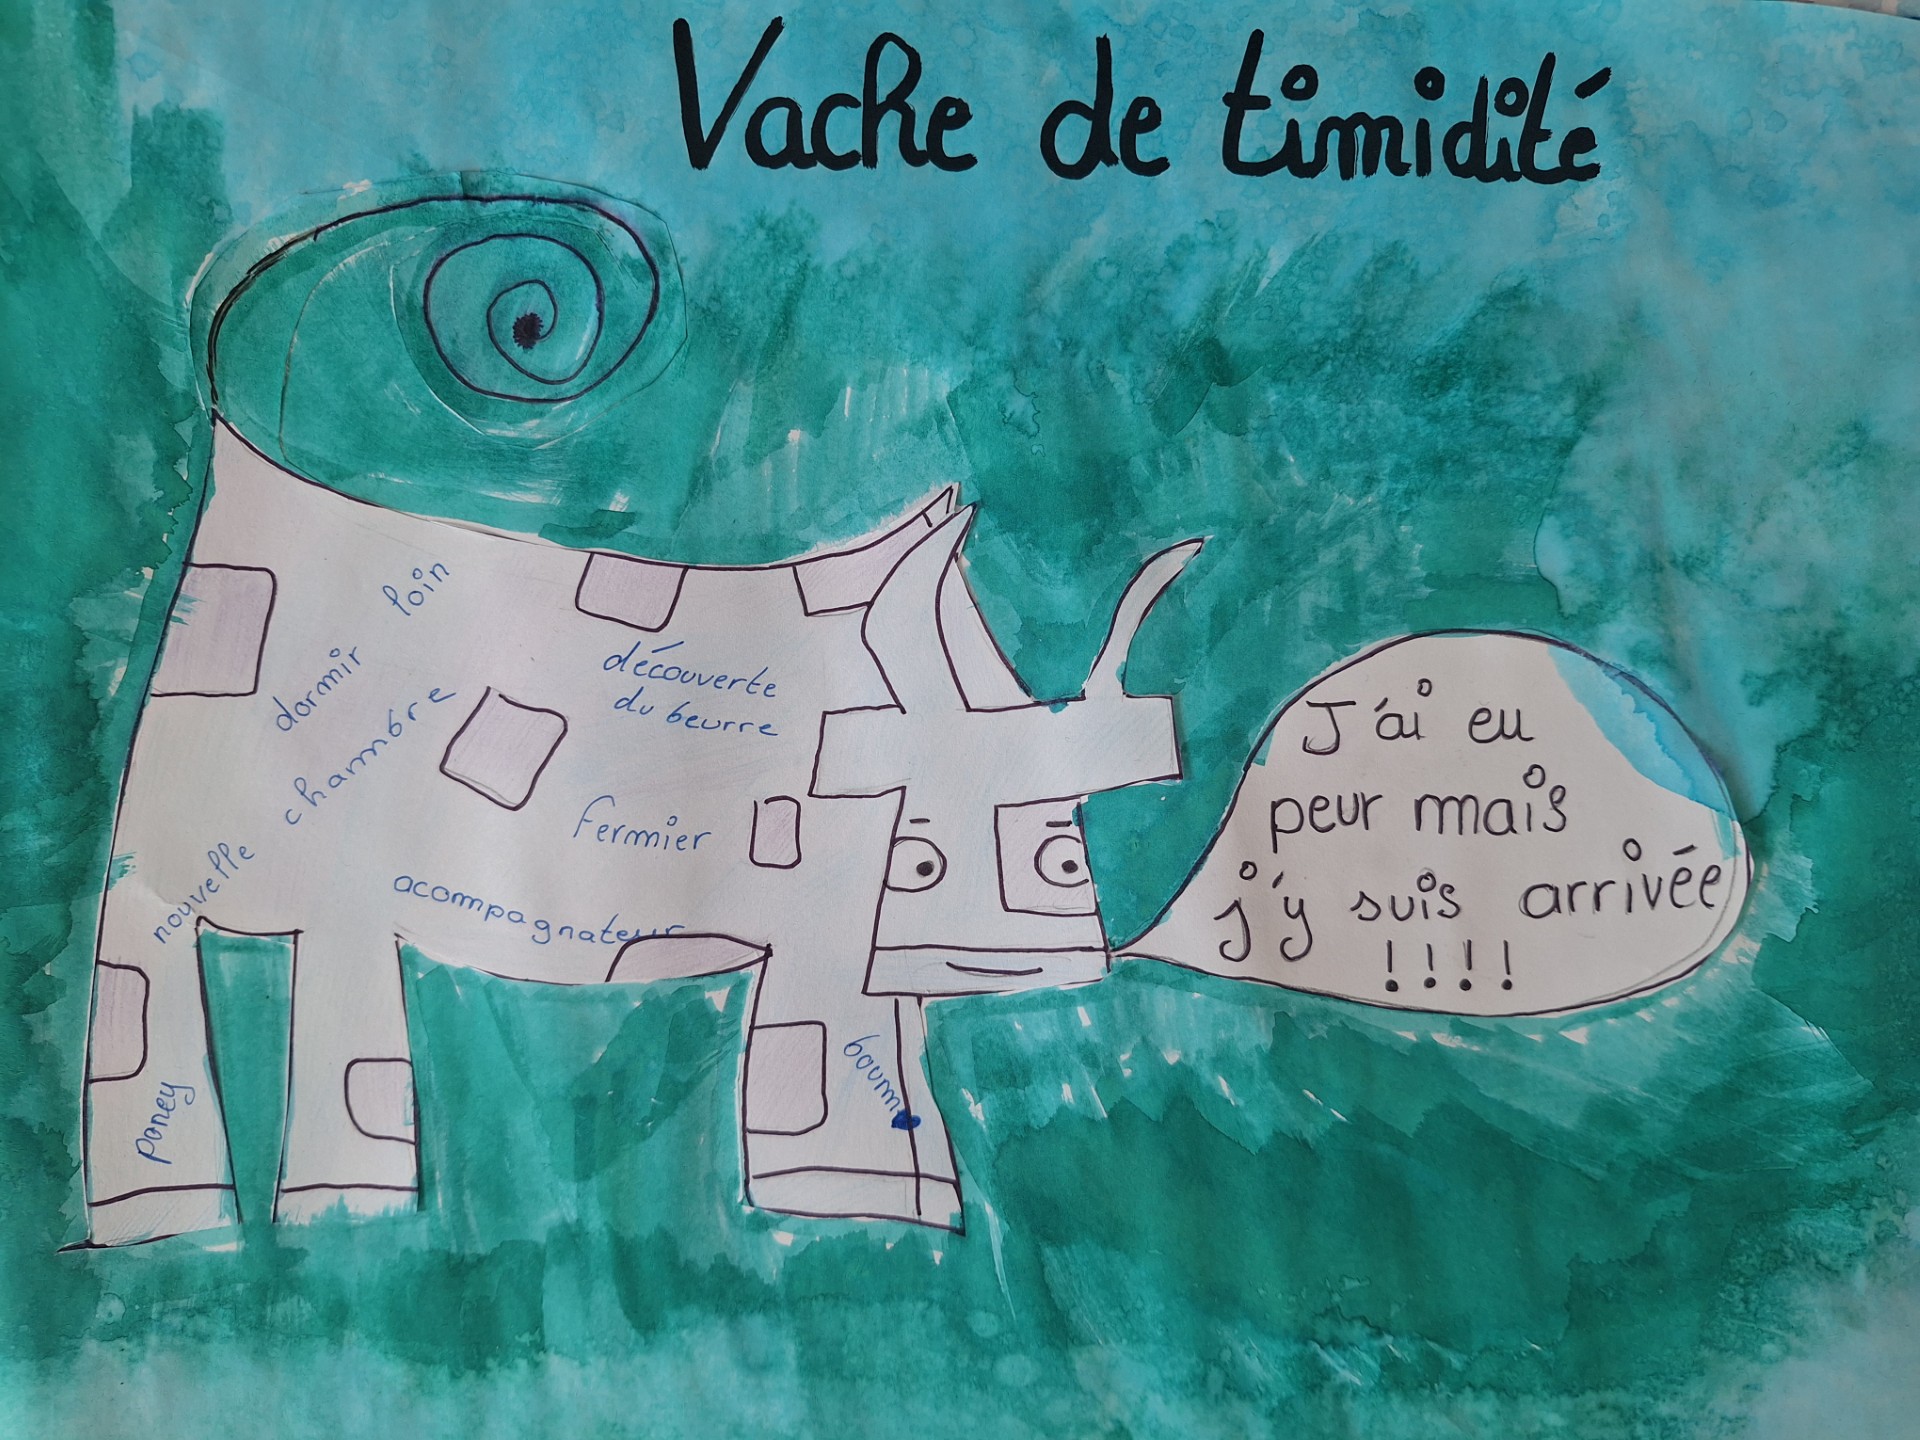 Vache de timidité
loin
dormir
chambre
nouvelle
découverte
du beurre
fermier
acompagnateur
poney
boum
J'ai eu
peur mais
j'y suis arrivée
!!!!